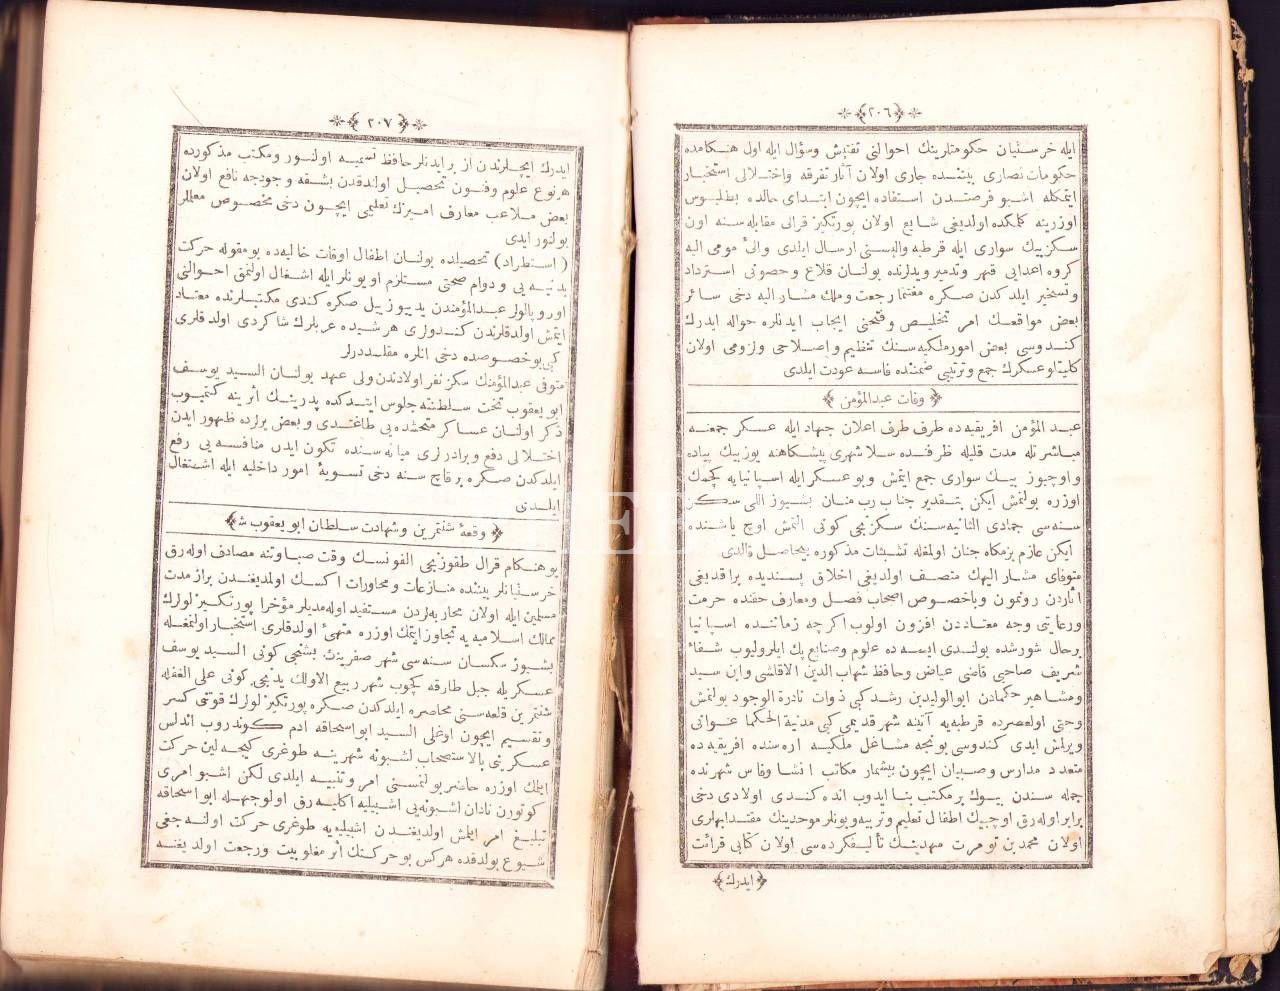 ﴿٢٠٦﴾
ايله خرستيان حكومتلرينك احوالنى تفتيش وسؤال ايله اول هنكامده
حكومات نصارى بيننده جارى اولان آثار تفرقه واختلالى استخبار
ايتمكله اشبو فرصتدن استفاده ايچون ابتداى حالده بطليوس
اوزرينه كلمكده اولديغى شايع اولان پورتكيز قرالى مقابله سنه اون
سكز بيك سوارى ايله قرطبه واليسنى ارسال ايلدى والئ مومى اليه
كروه اعدايى قهر وتدمير ويدلرنده بولنان قلاع وحصونى استرداد
وتسخير ايلدكدن صكره مغتنما رجعت وملك مشار اليه دخى سائر
بعض مواقعك امر تخليص وفتحنى ايجاب ايدنلره حواله ايدرك
كندوسى بعض امور ملكيه سنك تنظيم واصلاحى ولزومى اولان
كليتلو عسكرك جمع وترتيبى ضمننده فاسه عودت ايلدى
﴿وفات عبدالمؤمن﴾
عبد المؤمن افريقيه ده طرف طرف اعلان جهاد ايله عسكر جمعنه
مباشرتله مدت قليله ظرفنده سلا شهرى پيشكاهنه يوز بيك پياده
واوچيوز بيك سوارى جمع ايتمش وبو عسكر ايله اسپانيايه كچمك
اوزره بولنمش ايكن بتقدير جناب رب منان بشيوز اللى سكز
سنه سى جمادى الثانيه سنك سكزنجى كونى التمش اوچ ياشنده
ايكن عازم بزمكاه جنان اولمغله تشبثات مذكوره بيحاصل قالدى
متوفاى مشار اليهك متصف اولديغى اخلاق پسنديده براقديغى
اثاردن رونمون وباخصوص اصحاب فضل ومعارف حقنده حرمت
ورعايتى وجه معتاددن افزون اولوب اكرچه زماننده اسپانيا
برحال شورشده بولندى ايسه ده علوم وصنايع پك ايلروليوب شفاء
شريف صاحبى قاضى عياض وحافظ شهاب الدين الاقلشى وابن سيد
ومشاهير حكمادن ابوالوليد بن رشد كبى ذوات نادرة الوجود بولنمش
وحتى اولعصرده قرطبه يه آتينه شهر قديمى كبى مدنية الحكما عنوانى
ويرلمش ايدى كندوسى بونجه مشاغل ملكيه اره سنده افريقيه ده
متعدد مدارس وصبيان ايچون بيشمار مكاتب انشا وفاس شهرنده
جمله سندن بيوك بر مكتب بنا ايدوب انده كندى اولادى دخى
برابر اوله رق اوچ بيك اطفال تعليم وتربيه وبونلر موحدينك مقتدابهلرى
اولان محمد بن تومرت مهدينك تأليفكرده سى اولان كتابى قرائت
﴿ايدرك﴾
﴿٢٠٧﴾
ايدرك ايچلرندن از برايدنلر حافظ تسميه اولنور ومكتب مذكورده
هر نوع علوم وفنون تحصيل اولندقدن بشقه وجودجه نافع اولان
بعض ملاعب معارف اميزك تعليمى ايچون دخى مخصوص معلملر
بولنور ايدى
(استطراد) تحصيلده بولنان اطفال اوقات خاليه ده بومقوله حركت
بدنيه يى ودوام صحتى مستلزم اويونلر ايله اشغال اولنمق احوالنى
اوروپالولر عبدالمؤمندن يدييوز ييل صكره كندى مكتبلرنده معتاد
ايتمش اولدقلرندن كندولرى هر شيده عربلرك شاكردى اولدقلرى
كبى بو خصوصده دخى انلره مقلددرلر
متوفى عبدالمؤمنك سكز نفر اولادندن ولى عهد بولنان السيد يوسف
ابو يعقوب تخت سلطنته جلوس ايتدكده پدرينك اثرينه كتميوب
ذكر اولنان عساكر متحشده يى طاغتدى وبعض يرلرده ظهور ايدن
اختلالى دفع وبرادرلرى ميانه سنده تكون ايدن منافسه يى رفع
ايلدكدن صكره بر قاچ سنه دخى تسويۀ امور داخليه ايله اشتغال
ايلدى
﴿وقعۀ شنتمرين وشهادت سلطان ابو يعقوب ش﴾
بو هنكام قرال طقوزنجى الفونسك وقت صباوتنه مصادف اوله رق
خرستيانلر بيننده منازعات ومحاورات اكسك اولمديغندن براز مدت
مسلمين ايله اولان محاربه لردن مستفيد اوله مديلر مؤخرا پورتكيزلولرك
ممالك اسلاميه يه تجاوز ايتمك اوزره متهئ اولدقلرى استخبار اولنمغله
بشيوز سكسان سنه سى شهر صفرينك بشنجى كونى السيد يوسف
عسكريله جبل طارقه كچوب شهر ربيع الاولك يدنجى كونى على الغفله
شنتمرين قلعه سنى محاصره ايلدكدن صكره پورتكيزلولرك قوتنى كسر
وتقسيم ايچون اوغلى السيد ابو اسحاقه ادم كوندروب اندلس
عسكرينى بالاستصحاب لشبونه شهرينه طوغرى كيجه لين حركت
ايتمك اوزره حاضر بولنمسنى امر وتنبيه ايلدى لكن اشبو امرى
كوتورن نادان اشبونه يى اشبيليه اكليه رق اولوجهله ابو اسحاقه
تبليغ امر ايتمش اولديغندن اشبيليه يه طوغرى حركت اولنه جغى
شيوع بولدقده هركس بو حركتك اثر مغلوبيت ورجعت اولديغنه